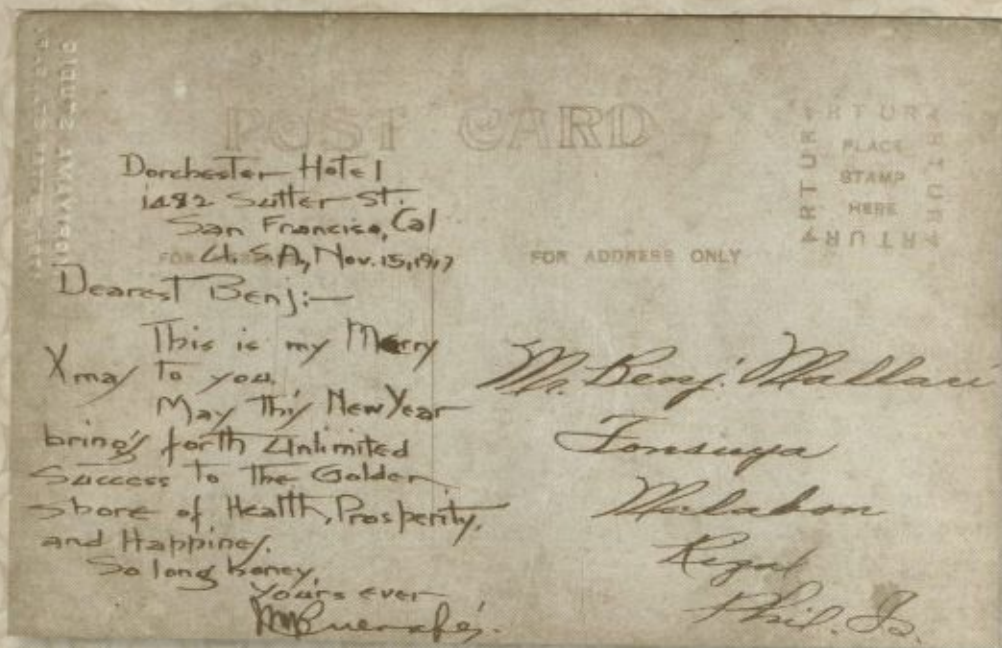 POST CARD
ARTURA
ARTURA
PLACE
STAMP
HERE
ARTURA
ARTURA
Dorchester Hotel
1482 Sutter St.
San Francisco, Cal
U.S.A, Nov. 15, 1917
FOR
FOR ADDRESS ONLY
Dearest Benj:—
This is my Merry
Xmas to you.
May this New Year
brings forth Unlimited
Success to the Golden
shore of Health, Prosperity,
and Happiness.
So long honey,
Yours ever
Mr. Benj. Mallari
Tonsuya
Malabon
Rizal
Phil. Is.